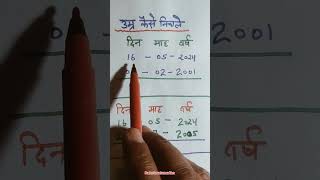 उम्र कैसे निकाले
दिन माह वर्ष
16 - 05 - 2024
- 02 - 2001
दिन माह वर्ष
16 - 05 - 2024
- 2005